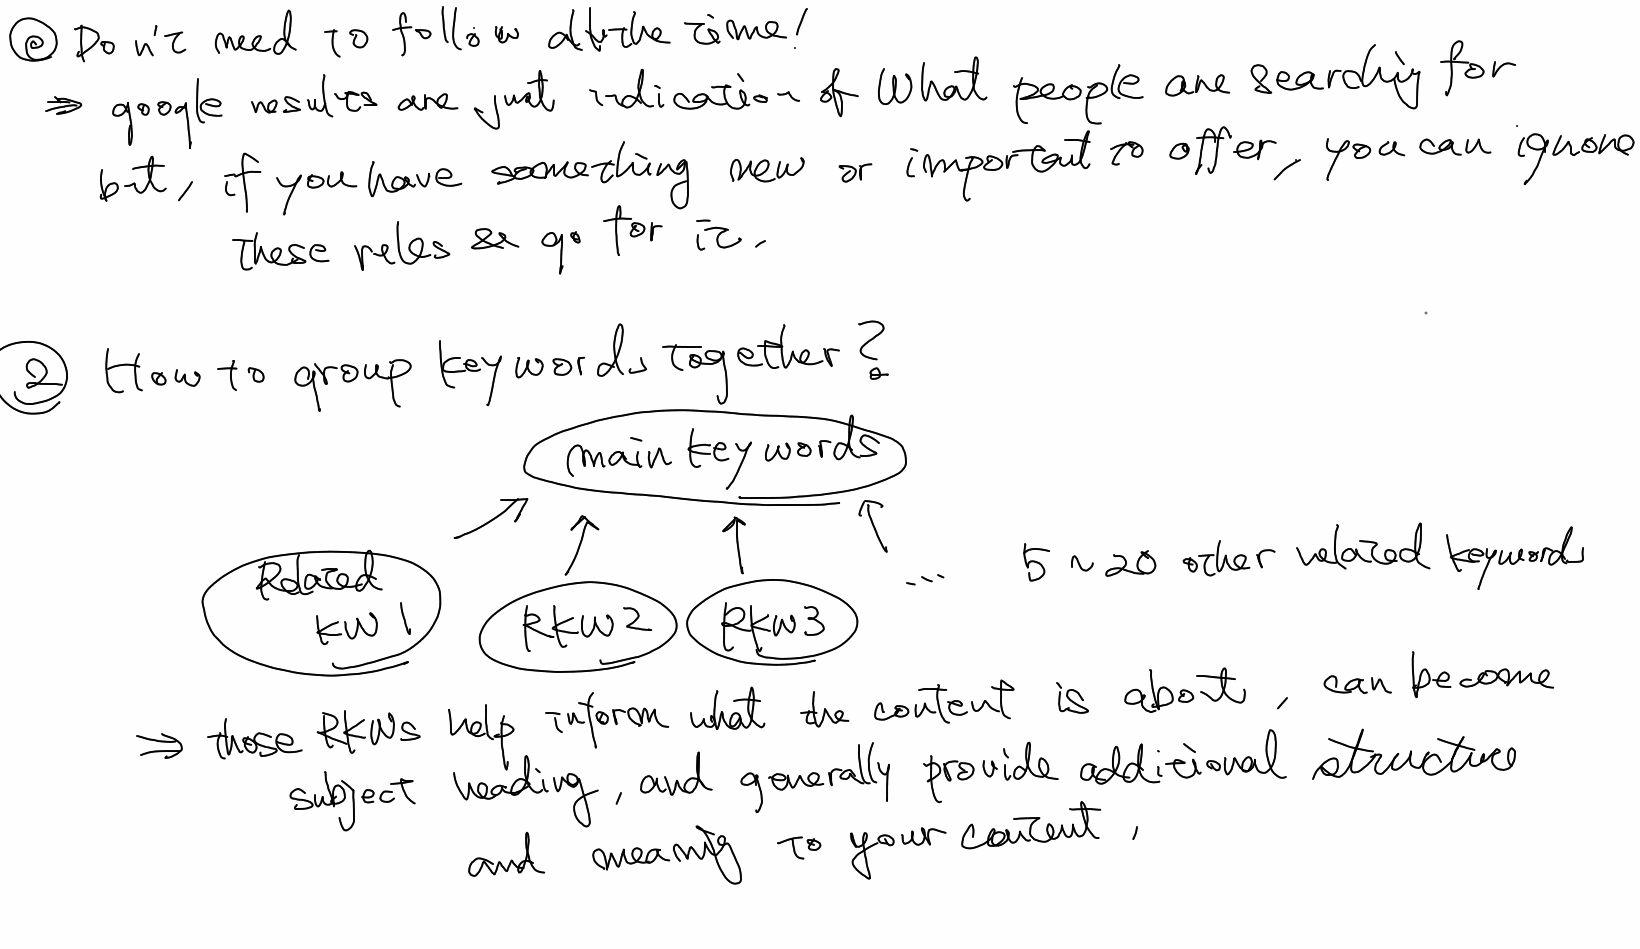 ⓔ Don't need to follow all the time!
⇒ google results are just indication of What people are searching for
but, if you have something new or important to offer, you can ignore
these rules & go for it.
② How to group keywords together?
main keywords
Related
KW 1
RKW2
RKW3
...
5 ~ 20 other related keywords
⇒ those RKWs help inform what the content is about, can become
subject heading, and generally provide additional structure
and meaning to your content,